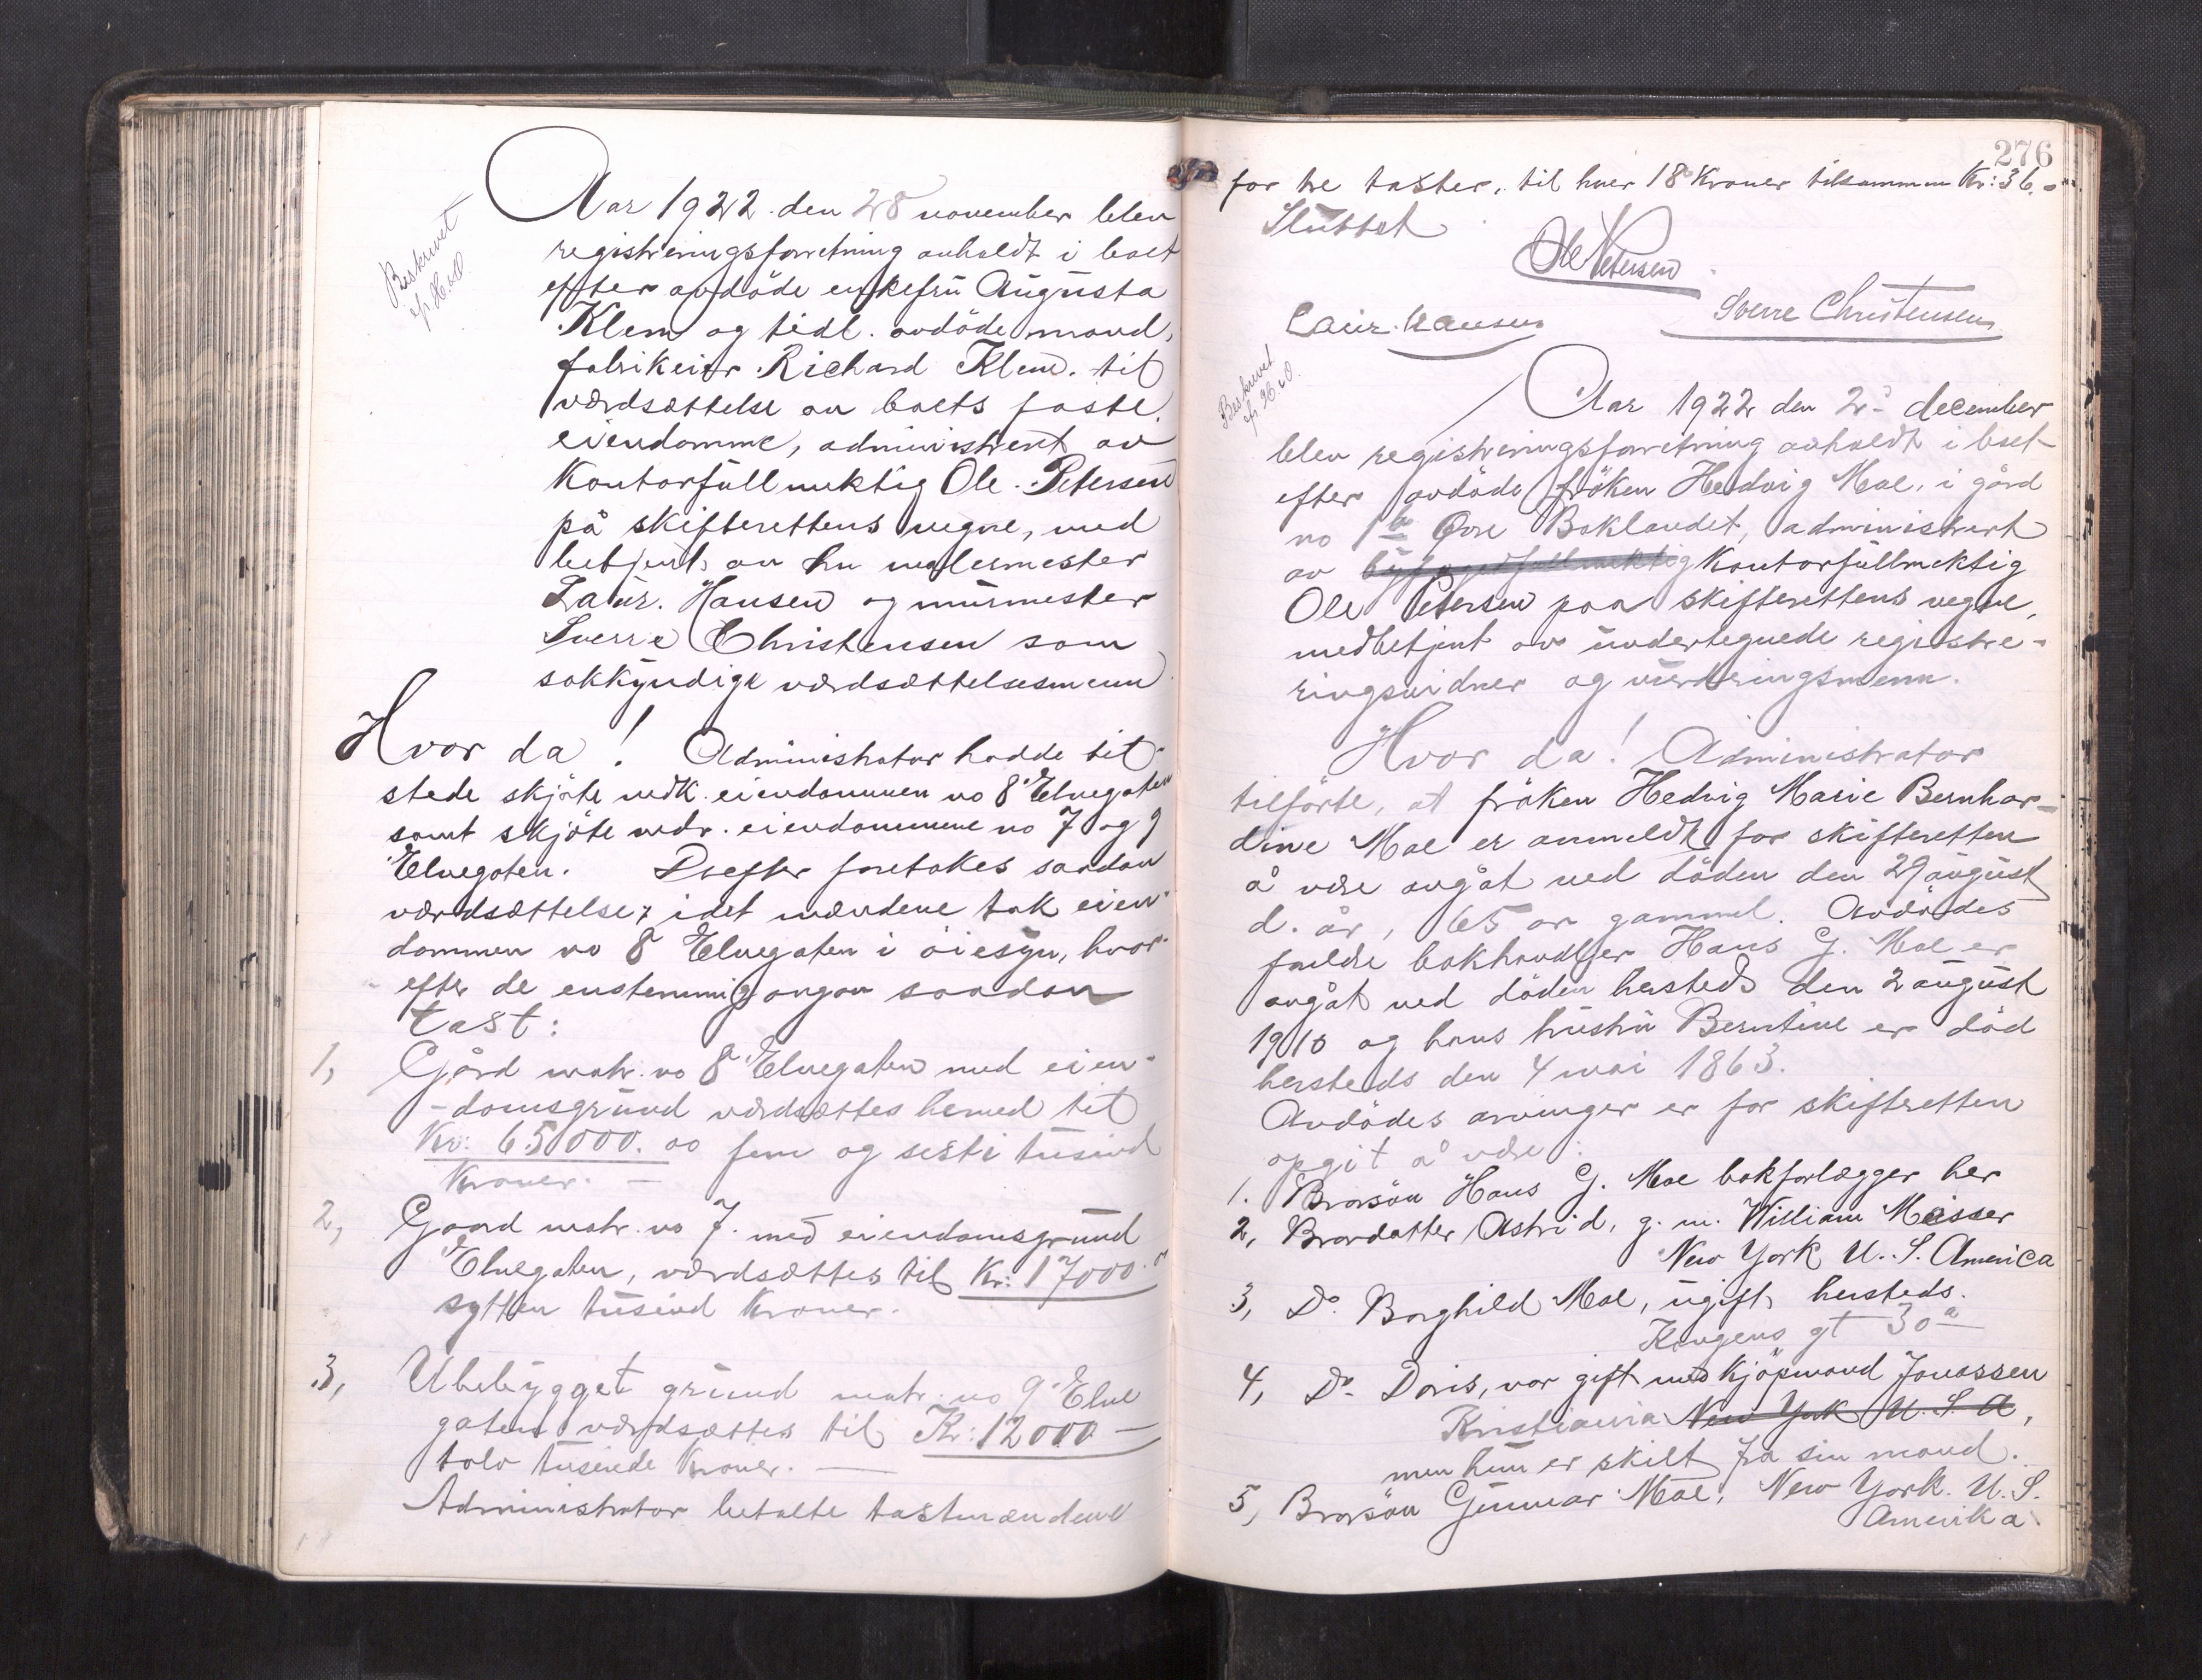 Aar 1922 den 28 november blev
registreringsforretning avholdt i boet
efter avdöde enkefru Augusta
Klem og tidl. avdöde mand,
fabrikeier Richard Klem. til
værdsættelse av boets faste
eiendomme, administrert av
Kontorfullmektig Ole Petersen
på skifterettens vegne, med
betjent av hr malermester
Laur. Hansen og murmester
Sverre Christensen som
sakkyndige værdsættelsesmenn
Beskrevet
Hvor da! Administrator hadde til
stede skjöte vedk. eiendommen no 8 Elvegaten
samt skjöte vedr. eiendommene no 7 og 9
Elvegaten. Derefter foretokes saadan
værdsættelse, idet mændene tok eien-
dommen no 8 Elvegaten i öiesyn, hvor-
efter de enstemmig avgav saadan
tast:
1, Gård matr. no 8 Elvegaten med eien-
-domsgrund værdsættes herved til
Kr: 65000.00 fem og sesti tusind
Kroner. —
2, Gaard matr. no 7. med eiendomsgrund
Elvegaten, værdsættes til Kr: 17000.
sytten tusind Kroner.
3, Ubebygget grund matr. no 9 Elve
gaten værdsættes til Kr: 12000 —
tolv tusinde Kroner. —
Administrator betalte tastmændene
276
for tre taster, til hver 18 Kroner tilsammen Kr: 36.
Sluttet
Ole Petersen
Laur. Hansen
Sverre Christensen
Beskrevet
Aar 1922 den 2 december
blev registreringsforretning avholdt i boet
efter avdöde fröken Hedvig Moe, i gård
no 1b Övre Baklandet, administrert
av Kontorfullmektig
Ole Petersen paa skifterettens vegne,
medbetjent av undertegnede registre-
ringsvidner og vurderingsmenn.
Hvor da! Administrator
tilförte, at fröken Hedvig Marie Bernhar-
dine Moe er anmeldt for skifteretten
å være avgåt ved döden den 29 august
d. år, 65 år gammel. Avdödes
forældre bokhandler Hans G. Moe er
avgåt ved döden hersteds den 2 august
1910 og hans hustru Berntine er död
hersteds den 4 mai 1863.
Avdödes arvinger er for skifteretten
opgit å være:
1. Brorsön Hans G. Moe bokforlægger her
2, Brordatter Astrid, g. m. William Meisser
New York U. S. America
3, Do. Borghild Moe, ugift, hersteds.
Kongens gt 30a
4, Do. Doris, var gift med kjöpmand Jonassen
Kristiania New York U. S. A,
men hun er skilt fra sin mand.
5, Brorsön Gunnar Moe, New York. U. S.
Amerika.